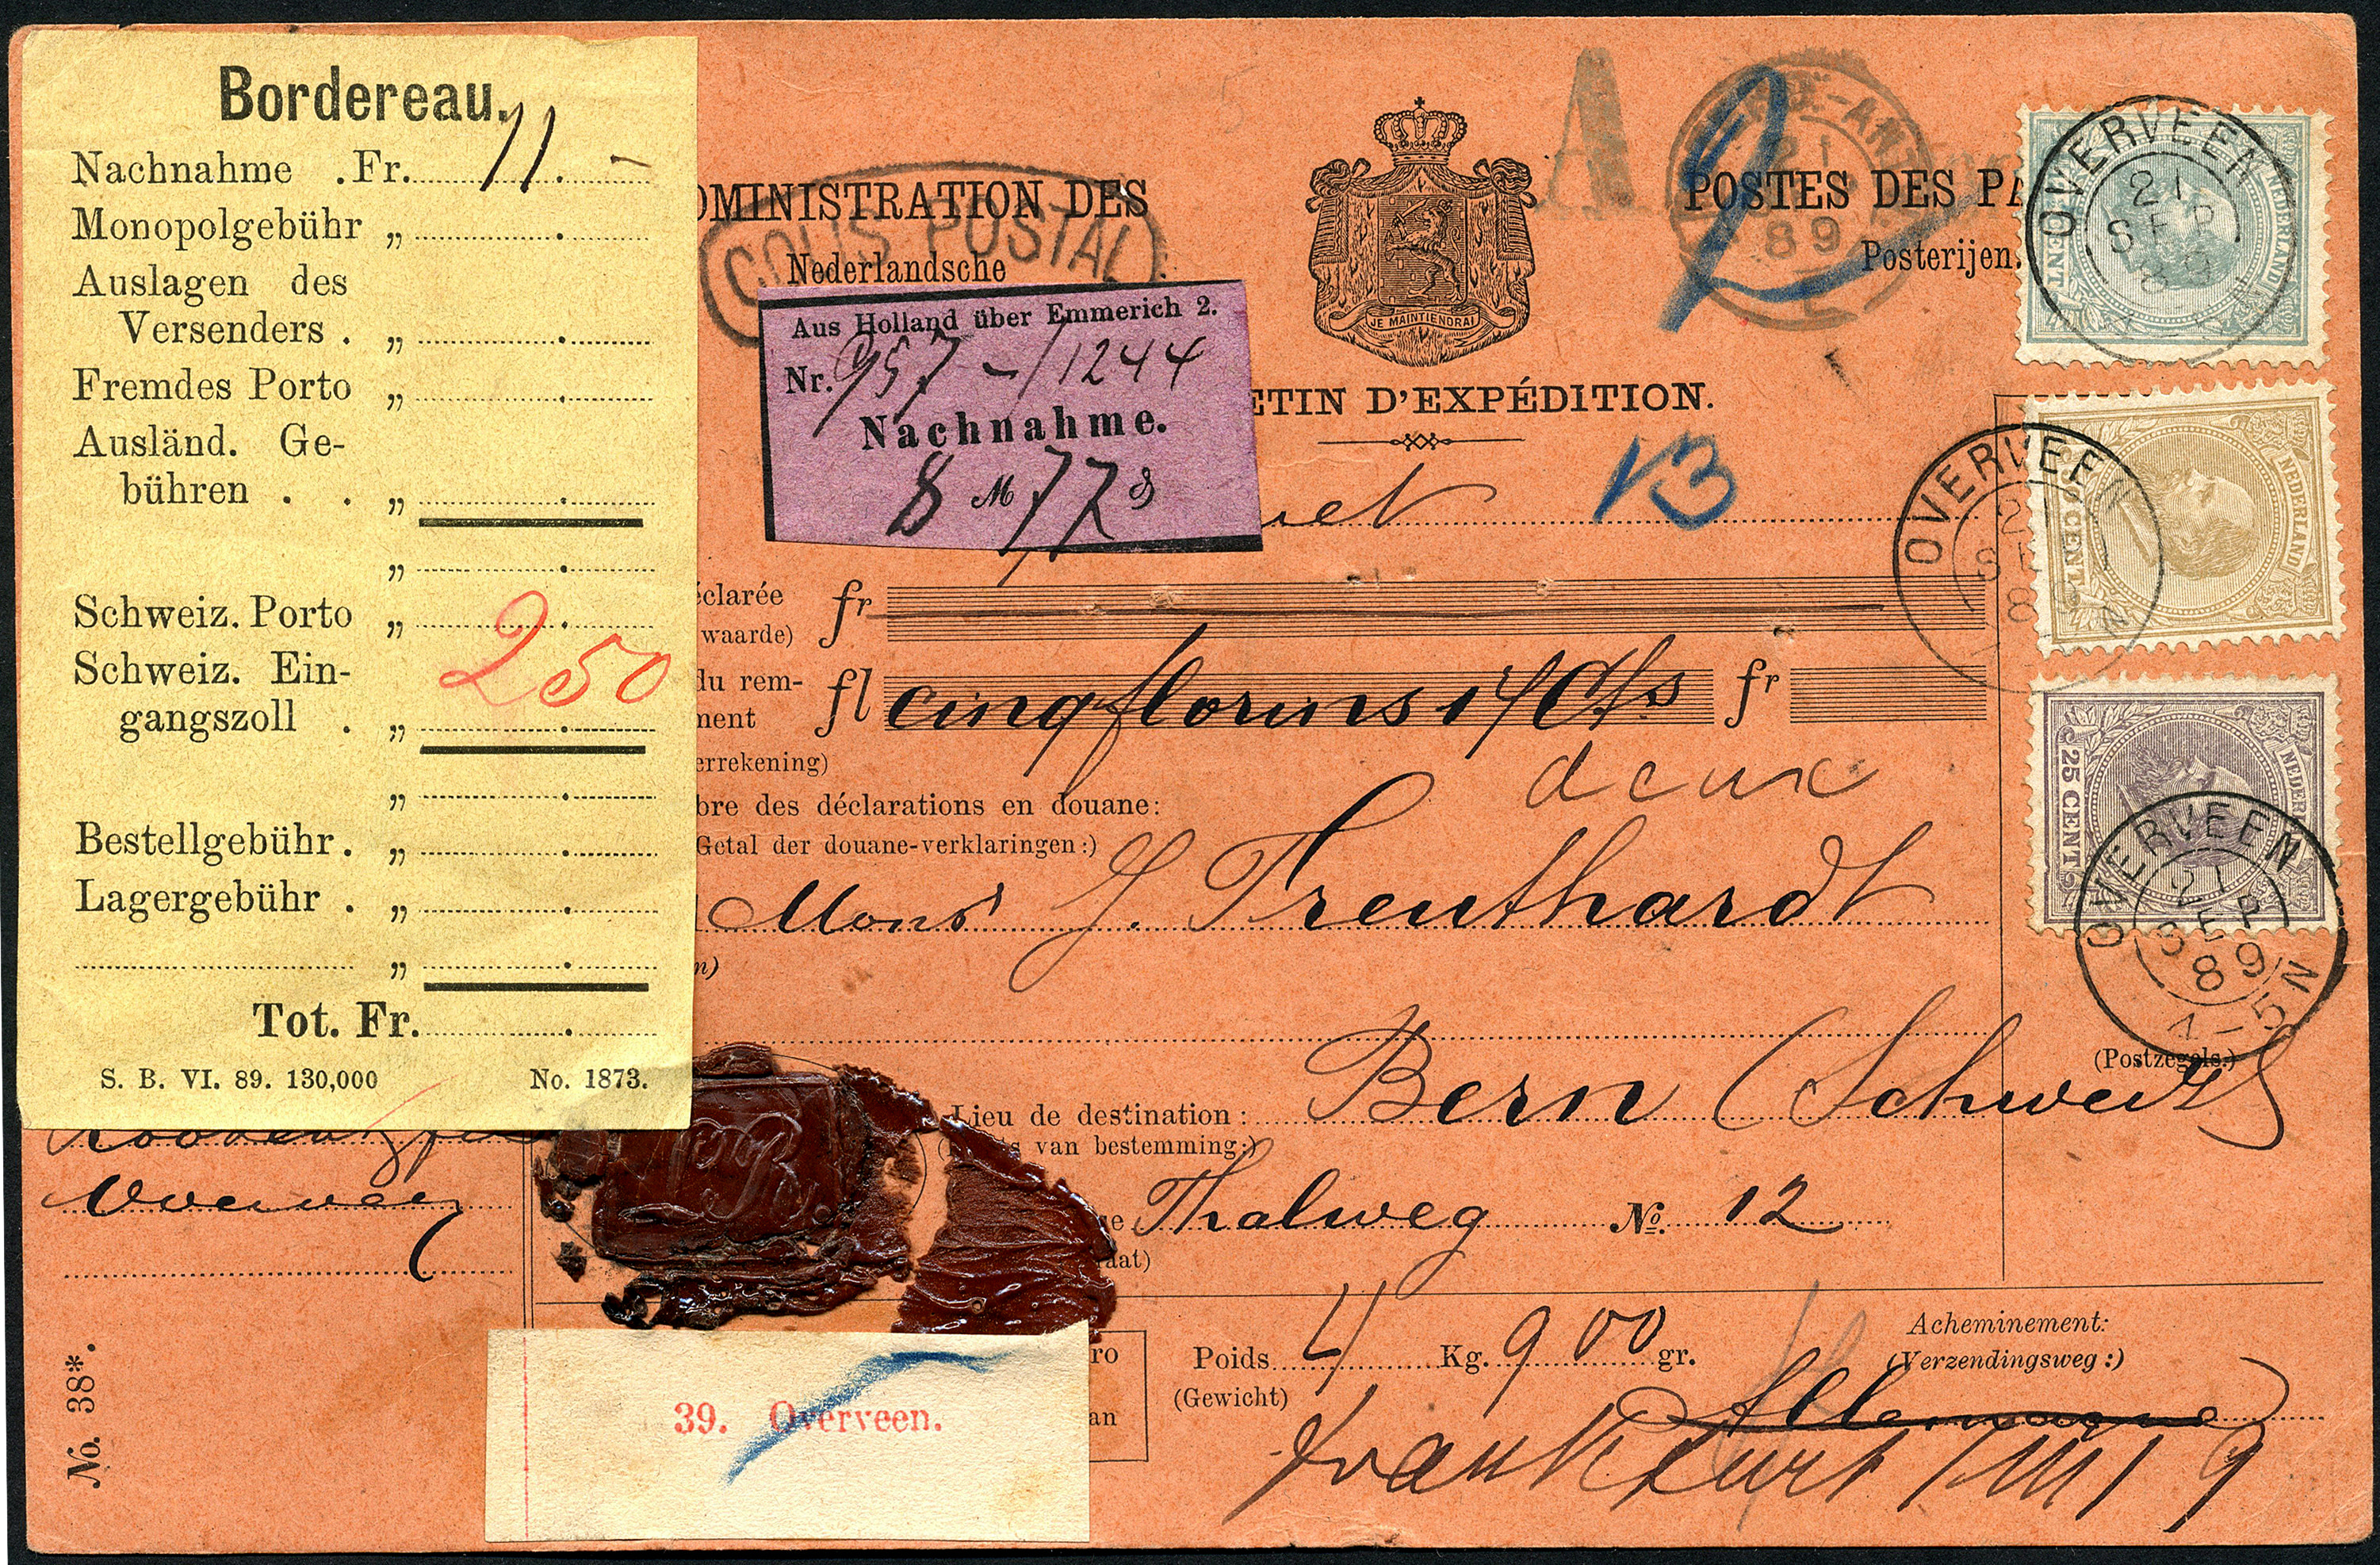 Bordereau.
Nachnahme . Fr. 11. –
Monopolgebühr „
Auslagen des
Versenders . „
Fremdes Porto „
Ausländ. Ge-
bühren . . „
„
Schweiz. Porto „
Schweiz. Ein-
gangszoll . „
250
„
Bestellgebühr . „
Lagergebühr . „
„
Tot. Fr.
S. B. VI. 89. 130,000 No. 1873.
Overveen
No. 38*.
DMINISTRATION DES
COLIS POSTAL
Nederlandsche
JE MAINTIENDRAI
A
2
21
89
POSTES DES PA
Posterijen.
Aus Holland über Emmerich 2.
Nr. 957 – 11244
Nachnahme.
8 M 77 ₰
ETIN D'EXPÉDITION.
13
éclarée fr
waarde)
du rem- fl cinq florins 17 Cts fr
ment
errekening)
deux
bre des déclarations en douane:
Getal der douane-verklaringen:)
Mons J. Trenthardt
n)
Lieu de destination: Bern (Schweiz)
van bestemming:)
se Thalweg No. 12
aat)
Poids 4 Kg. 900 gr.
(Gewicht)
Acheminement:
(Verzendingsweg:)
Allemagne
Frankfurt /M/ 9
ro
an
39. Overveen.
OVERVEEN
21 SEP 89
NEDERLAND
CENT
OVERVEEN
NEDERLAND
CENT
25 CENT
OVERVEEN
21 SEP 89
4-5N
(Postzegels.)